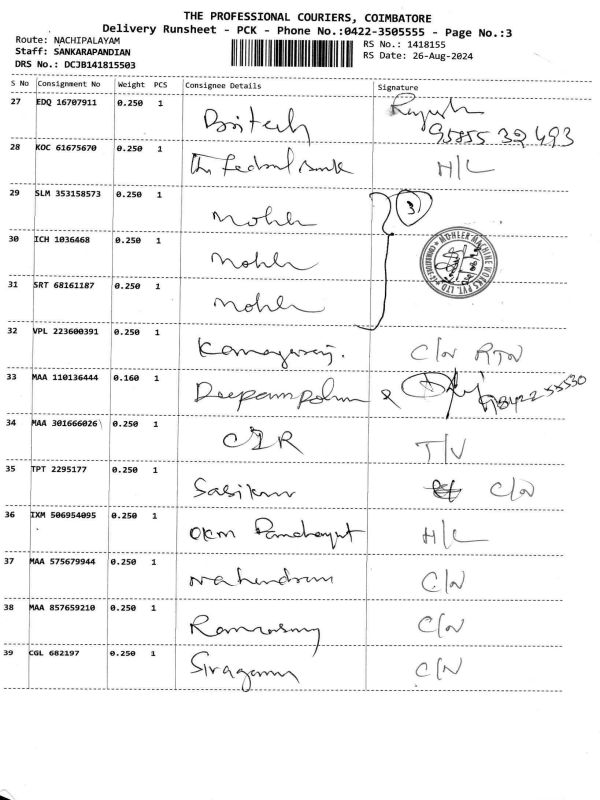 THE PROFESSIONAL COURIERS, COIMBATORE
Delivery Runsheet - PCK - Phone No.:0422-3505555 - Page No.:3
Route: NACHIPALAYAM
Staff: SANKARAPANDIAN
DRS No.: DCJB141815503
RS No.: 1418155
RS Date: 26-Aug-2024
S No Consignment No Weight PCS Consignee Details Signature
27 EDQ 16707911 0.250 1
28 KOC 61675670 0.250 1 The Federal Bank H/L
29 SLM 353158573 0.250 1 Mohler 3
30 ICH 1036468 0.250 1 Mohler
31 SRT 68161187 0.250 1 Mohler
MOHLER MACHINE WORKS PVT. LTD
32 VPL 223600391 0.250 1 C/N RTN
33 MAA 110136444 0.160 1
34 MAA 301666026 0.250 1 T/V
35 TPT 2295177 0.250 1 C/N
36 IXM 506954095 0.250 1 H/L
37 MAA 575679944 0.250 1 Mahendran C/N
38 MAA 857659210 0.250 1 C/N
39 CGL 682197 0.250 1 C/N